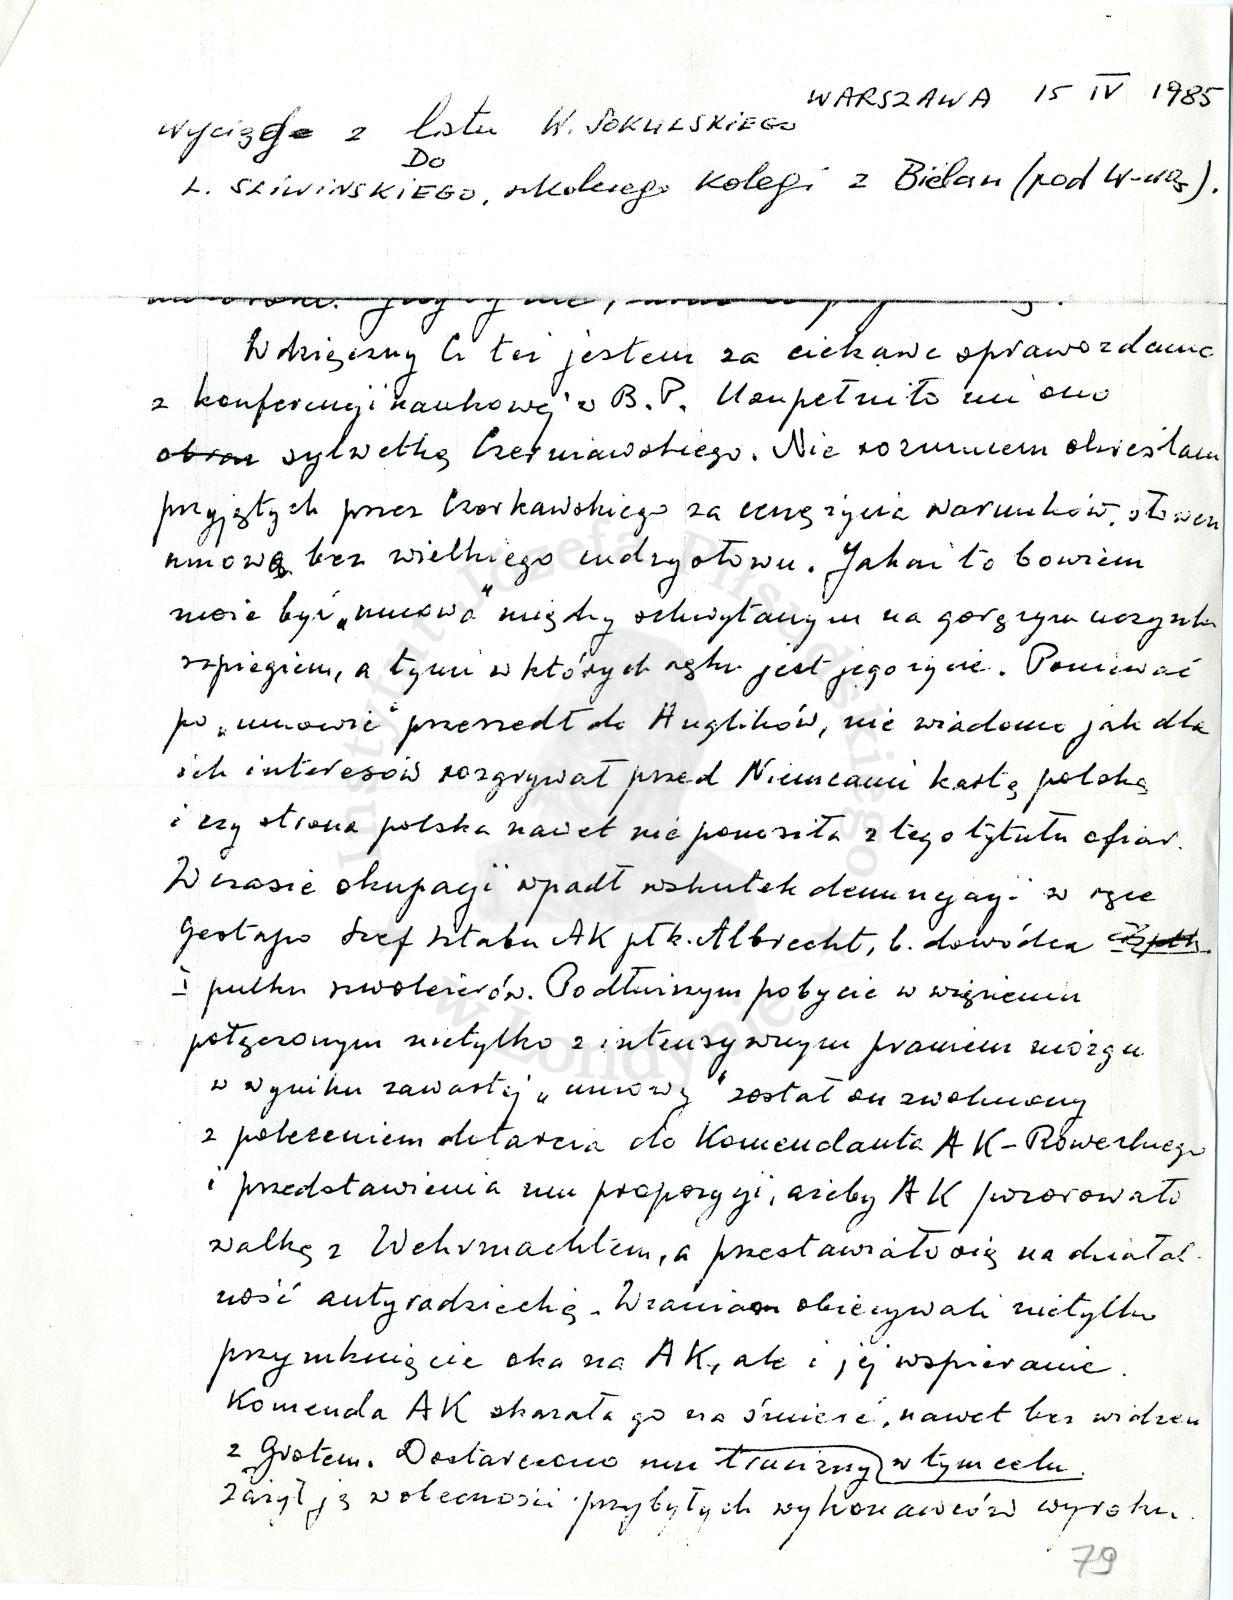 WARSZAWA 15 IV 1985
Wyciąg z listu W. SOKULSKIEGO
DO
L. SLIWINSKIEGO, szkolnego kolegi z Bielan (pod W-wą).
Wdzięczny Ci też jestem za ciekawe sprawozdanie
z konferencji naukowej w B.P. Uzupełniło mi ono
obraz sylwetkę Czerniawskiego. Nie rozumiem określam
przyjętych przez Czerkawskiego za cenę życia warunków, słowem
umową bez wielkiego cudzysłowu. Jakaż to bowiem
może być „umowa" między schwytanym na gorącym uczynku
szpiegiem, a tymi w których ręku jest jego życie. Ponieważ
po „umowie" przeszedł do Anglików, nie wiadomo jak dla
ich interesów rozgrywał przed Niemcami kartę polską
i czy strona polska nawet nie ponosiła z tego tytułu ofiar.
W czasie okupacji wpadł wskutek denuncjacji w ręce
Gestapo Szef Sztabu AK płk. Albrecht, b. dowódca
I pułku szwoleżerów. Po dłuższym pobycie w więzieniu
połączonym nietylko z intensywnym praniem mózgu
w wyniku zawartej „umowy" został on zwolniony
z poleceniem dotarcia do Komendanta AK - Roweckiego
i przedstawienia mu propozycji, ażeby AK pozorowało
walkę z Wehrmachtem, a przestawiało się na działal-
ność antyradziecką. Wzamian obiecywali nietylko
przymknięcie oka na AK, ale i jej wspieranie.
Komenda AK skazała go na śmierć, nawet bez widzen
z Grotem. Dostarczono mu trucizny w tym celu.
Zażył ją w obecności przybyłych wykonawców wyroku.
79
Instytut Józefa Piłsudskiego
w Londynie